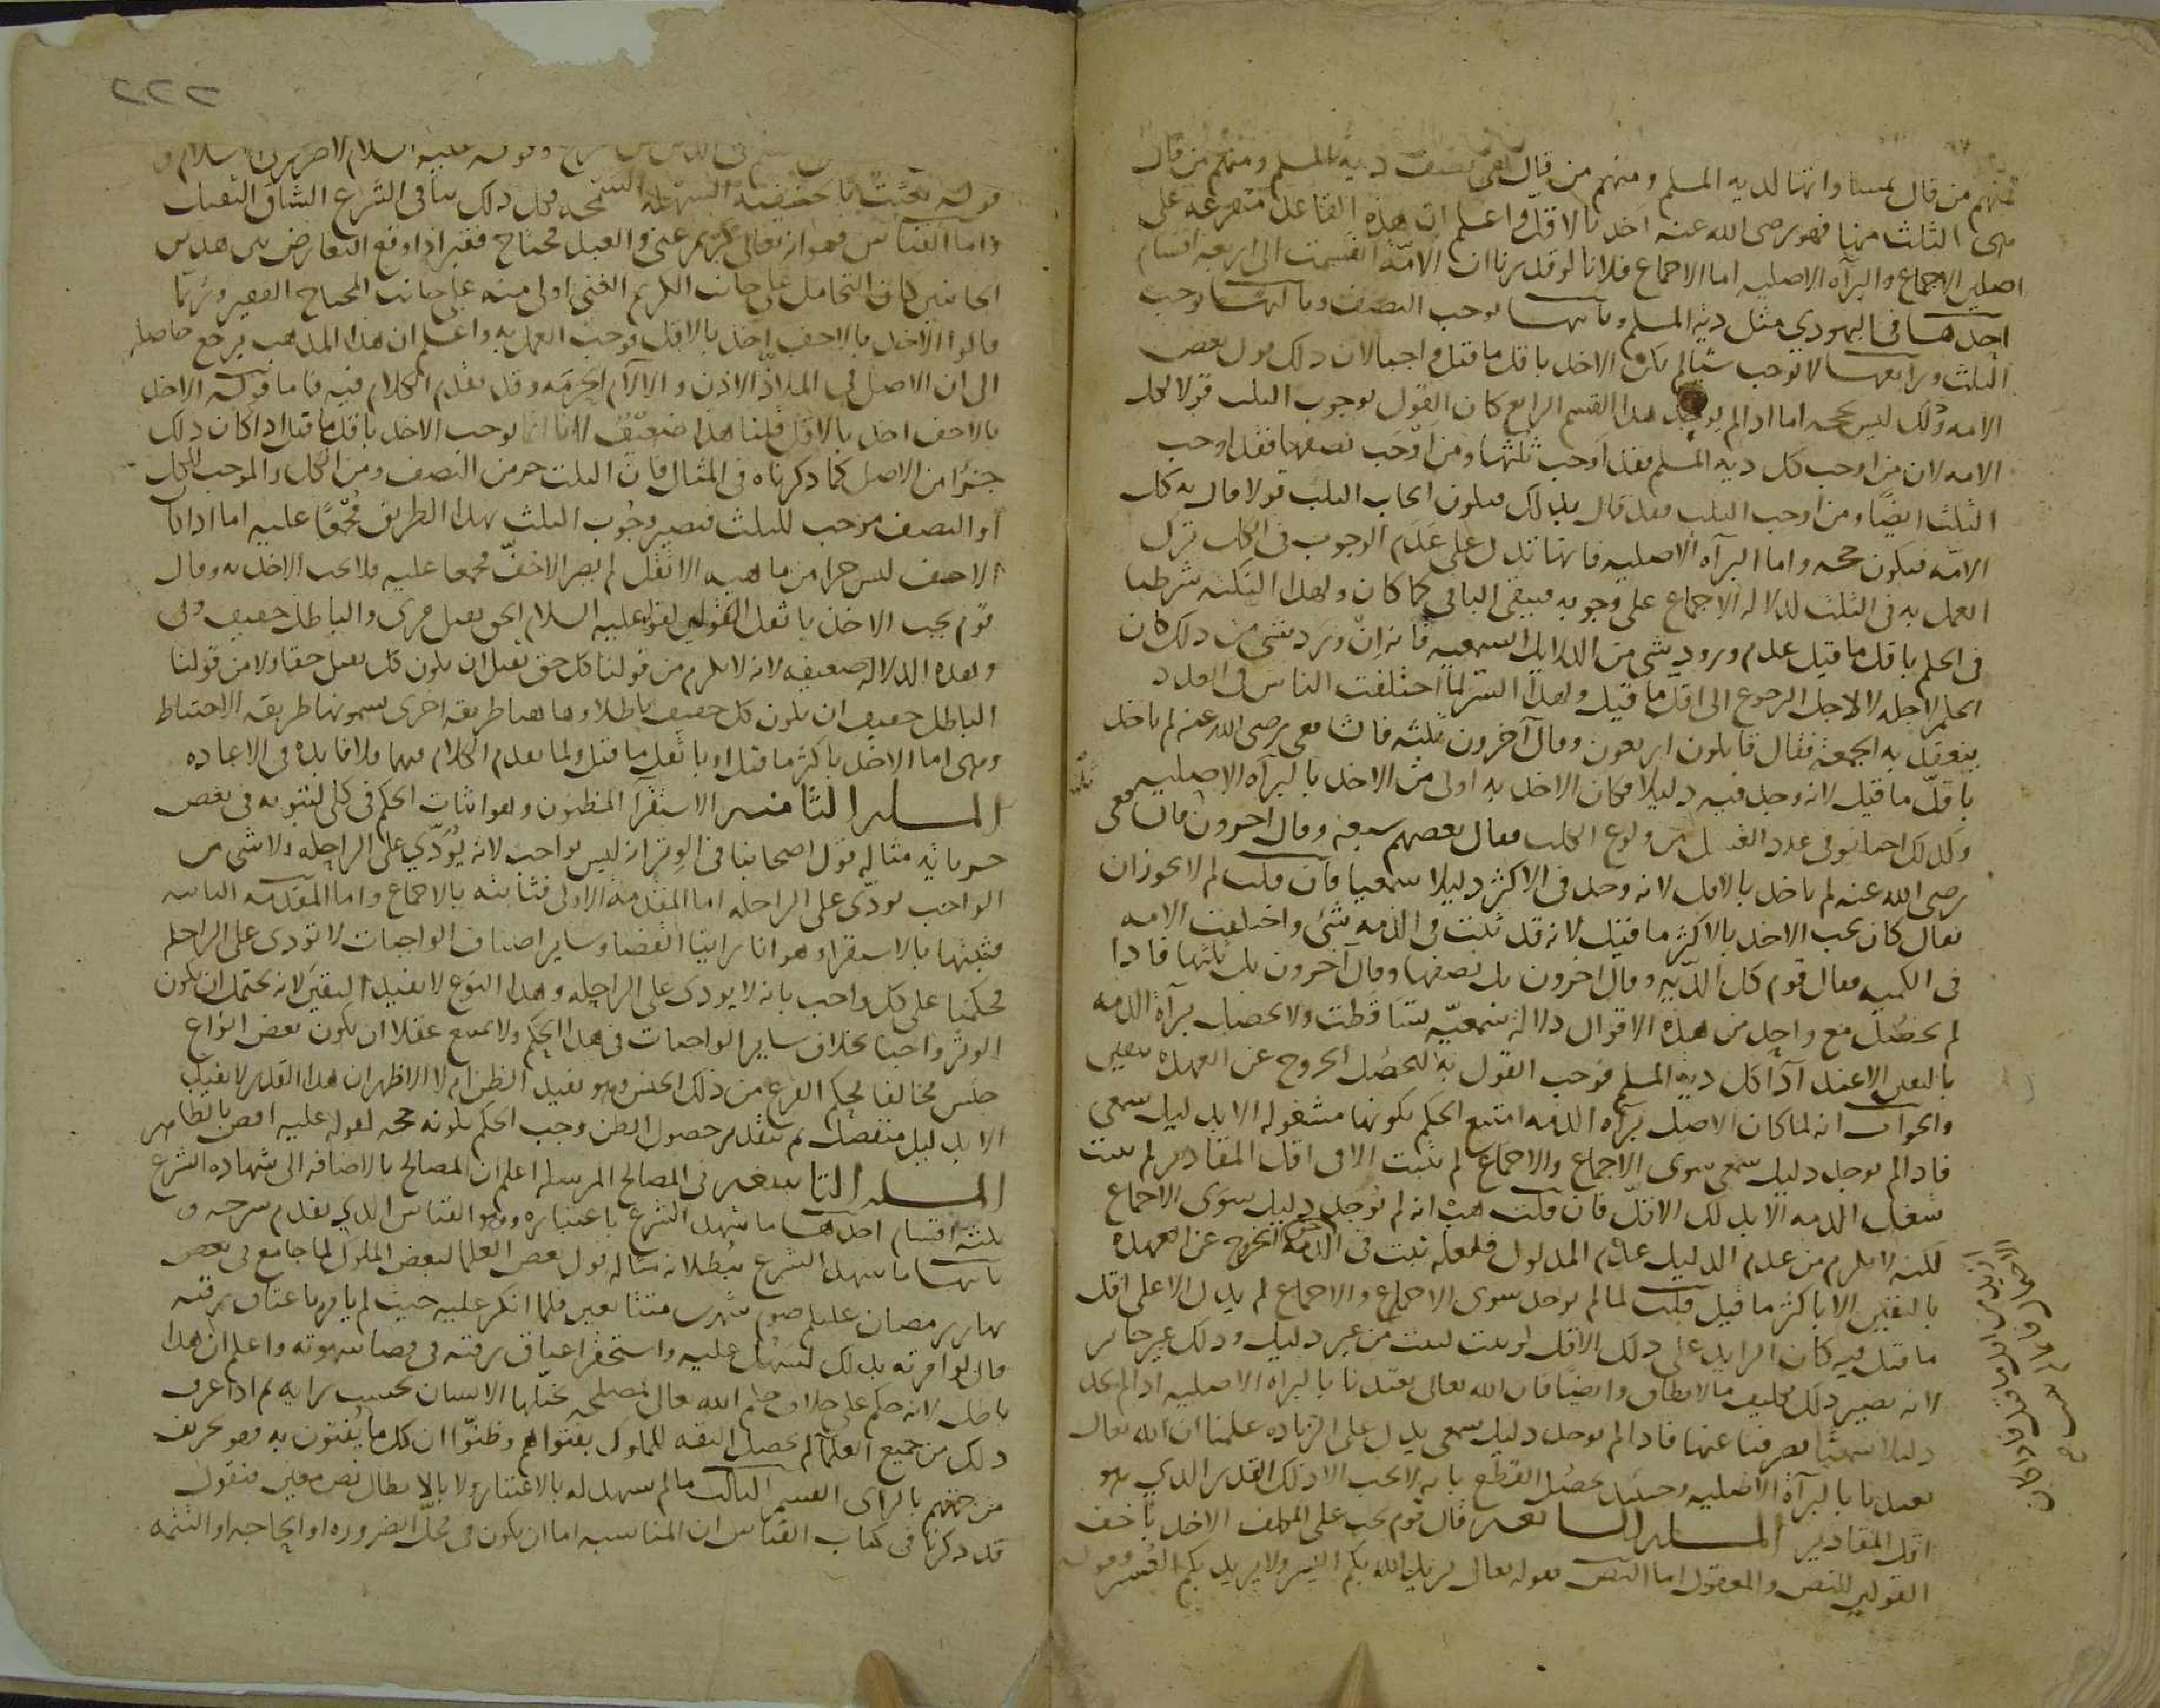 فمنهم من قال بمساواتها لدية المسلم ومنهم من قال هى نصف دية المسلم ومنهم من قال
هى الثلث منها فهو رضى الله عنه اخذ بالاقل واعلم ان هذه القاعدة متفرعة على
اصلين الاجماع والبرآه الاصليه اما الاجماع فلانا لو قدرنا ان الامة انقسمت الى اربعة اقسام
احدها فى اليهودى مثل دية المسلم وثانيها توجب النصف وثالثها توجب
الثلث ورابعها لا توجب شيا لم يكن الاخذ باقل ما قيل واجبا لان ذلك قول بعض
الامه وذلك ليس بحجه اما اذا لم يوجد هذا القسم الرابع كان القول بوجوب الثلث قولا لكل
الامه لان من اوجب كل دية المسلم فقد اوجب ثلثها ومن اوجب نصفها فقد اوجب
الثلث ايضا ومن اوجب الثلث فقد قال بذلك فيكون ايجاب الثلث قولا قال به كل
الامه فيكون حجه واما البرآه الاصليه فانها تدل على عدم الوجوب فى الكل ترك
العمل به فى الثلث لدلاله الاجماع على وجوبه فيبقى الباقى كما كان ولهذا النكته شرطنا
فى الحكم باقل ما قيل عدم ورود شى من الدلايل السمعيه فانه ان ورد شى من ذلك كان
الحكم لاجله لا لاجل الرجوع الى اقل ما قيل ولهذا السر لما اختلفت الناس فى العدد
ينعقد به الجمعة فقال قايلون اربعون وقال آخرون ثلثه فالشافعى رضى الله عنه لم ياخذ
باقل ما قيل لانه وجد فيه دليلا فكان الاخذ به اولى من الاخذ بالبرآه الاصليه
وكذلك اختلفوا فى عدد الغسل من ولوغ الكلب فقال بعضهم سبعه وقال اخرون فالشافعى
رضى الله عنه لم ياخذ بالاقل لانه وجد فى الاكثر دليلا سمعيا فان قلت لم لا يجوز ان
يقال كان يجب الاخذ بالاكثر ما قيل لانه قد ثبت فى الذمه شى واختلفت الامه
فى الكميه فقال قوم كل الديه وقال اخرون بل نصفها وقال آخرون بل ثلثها فاذا
لم يحصل مع واحد من هذه الاقوال دلالة سمعيه تساقطت ولا يحصل برآة الذمه
باليقين الا عند اداء كل دية المسلم فوجب القول به ليحصل الخروج عن العهده بيقين
والجواب انه لما كان الاصل برآه الذمه امتنع الحكم بكونها مشغوله الا بدليل سمعى
فاذا لم يوجد دليل سمعى سوى الاجماع والاجماع لم يثبت الا فى اقل المقادير لم يثبت
شغل الذمه الا بذلك الاقل فان قلت هب انه لم يوجد دليل سوى الاجماع
لكنه لا يلزم من عدم الدليل عدم المدلول فلعله ثبت فى الذمه الخروج عن العهده
باليقين الا باكثر ما قيل قلت لما لم يوجد سوى الاجماع والاجماع لم يدل الا على اقل
ما قيل فيه كان الزايد على ذلك الاقل لو ثبت لثبت من غير دليل وذلك غير جايز
لانه يصير ذلك تكليف ما لا يطاق وايضا فان الله تعالى تعبدنا بالبراه الاصليه اذا لم نجد
دليلا سمعيا يصرفنا عنها فاذا لم يوجد دليل سمعى يدل على الزياده علمنا ان الله تعالى
تعبدنا بالبرآه الاصليه وحينئذ يحصل القطع بانه لا يجب الا ذلك القدر الذى هو
اقل المقادير المسله السابعه قال قوم يجب على المكلف الاخذ باخف
القولين للنص والمعقول اما النص فقوله تعالى يريد الله بكم اليسر ولا يريد بكم العسر وقوله
٢٢٢
وقوله عليه السلام لا ضرر فى الاسلام و
قوله بعثت بالحنيفية السهلة السمحه وكل ذلك ينافى الشرع الشاق الثقيل
واما القياس فهو انه تعالى كريم غنى والعبد محتاج فقير اذا وقع التعارض بين هذين
الجانبين كان التحامل على جانب الكريم الغنى اولى منه على جانب المحتاج الفقير وربما
قالوا الاخذ بالاخف اخذ بالاقل فوجب العمل به واعلم ان هذا المذهب يرجع حاصله
الى ان الاصل فى الملاذ الاذن والالام الحرمه وقد تقدم الكلام فيه فاما قوله الاخذ
بالاخف اخذ بالاقل قلنا هذا ضعيف لانا انما نوجب الاخذ باقل ما قيل اذا كان ذلك
جزءا من الاصل كما ذكرناه فى المثال فان الثلث جزء من النصف ومن الكل والموجب للكل
او النصف موجب للثلث فيصير وجوب الثلث بهذا الطريق مجمعا عليه اما اذا كان
الاخف ليس جزءا من ماهيه الاثقل لم يصر الاخف مجمعا عليه فلا يجب الاخذ به وقال
قوم يجب الاخذ باثقل القولين لقوله عليه السلام الحق ثقيل مرى والباطل خفيف وبى
وهذه الدلاله ضعيفه لانه لا يلزم من قولنا كل حق ثقيل ان يكون كل ثقيل حقا ولا من قولنا
الباطل خفيف ان يكون كل خفيف باطلا وهاهنا طريقه اخرى يسمونها طريقه الاحتياط
وهى اما الاخذ باكثر ما قيل او باثقل ما قيل ولما تقدم الكلام فيهما فلا فايده فى الاعاده
المسله الثامنه الاستقرا المظنون وهو اثبات الحكم فى كلى لثبوته فى بعض
جزياته مثاله قول اصحابنا فى الوتر انه ليس بواجب لانه يؤدى على الراحله ولا شى من
الواجب يؤدى على الراحله اما المقدمه الاولى فثابته بالاجماع واما المقدمه الثانيه
فثبتها بالاستقراء وهو انا راينا القضا وساير اصناف الواجبات لا تؤدى على الراحله
فحكمنا على كل واجب بانه لا يودى على الراحله وهذا النوع لا يفيد اليقين لانه يحتمل ان يكون
الوتر واجبا بخلاف ساير الواجبات فى هذا الحكم ولا يمتنع عقلا ان يكون بعض انواع
جنس مخالفا لحكم النوع من ذلك الجنس وهو يفيد الظن ام لا الاظهر ان هذا القدر لا يفيد
الا بدليل منفصل ثم بتقدير حصول الظن وجب الحكم بكونه حجه لقوله عليه اقضى بالظاهر
المسله التاسعه فى المصالح المرسله اعلم ان المصالح بالاضافه الى شهاده الشرع
ثلثه اقسام احدها ما شهد الشرع باعتباره وهو القياس الذى تقدم شرحه و
ثانيها ما شهد الشرع ببطلانه مثاله قول بعض العلما لبعض الملوك لما جامع فى بعض
نهار رمضان عليك صوم شهرين متتابعين فلما انكر عليه حيث لم يامره باعتاق رقبه
قال لو امرته بذلك لسهل عليه واستحقر اعتاق رقبه فى قضا شهوته واعلم ان هذا
باطل لانه حكم على خلاف حكم الله تعالى لمصلحه تخيلها الانسان بحسب رايه ثم اذا عرف
ذلك من جميع العلمآ لم يحصل الثقه للملوك بفتواهم وظنوا ان كل ما يفتون به فهو تحريف
من جهتهم بالراى القسم الثالث ما لم يشهد له بالاعتبار ولا بالابطال نص معين فنقول
قد ذكرنا فى كتاب القياس ان المناسبه اما ان يكون فى محل الضروره او الحاجه او التتمه